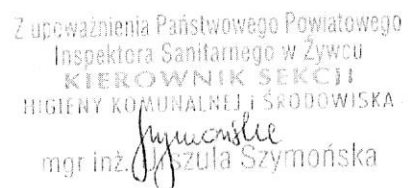 Z upoważnienia Państwowego Powiatowego
Inspektora Sanitarnego w Żywcu
KIEROWNIK SEKCJI
HIGIENY KOMUNALNEJ i ŚRODOWISKA
mgr inż. Urszula Szymońska